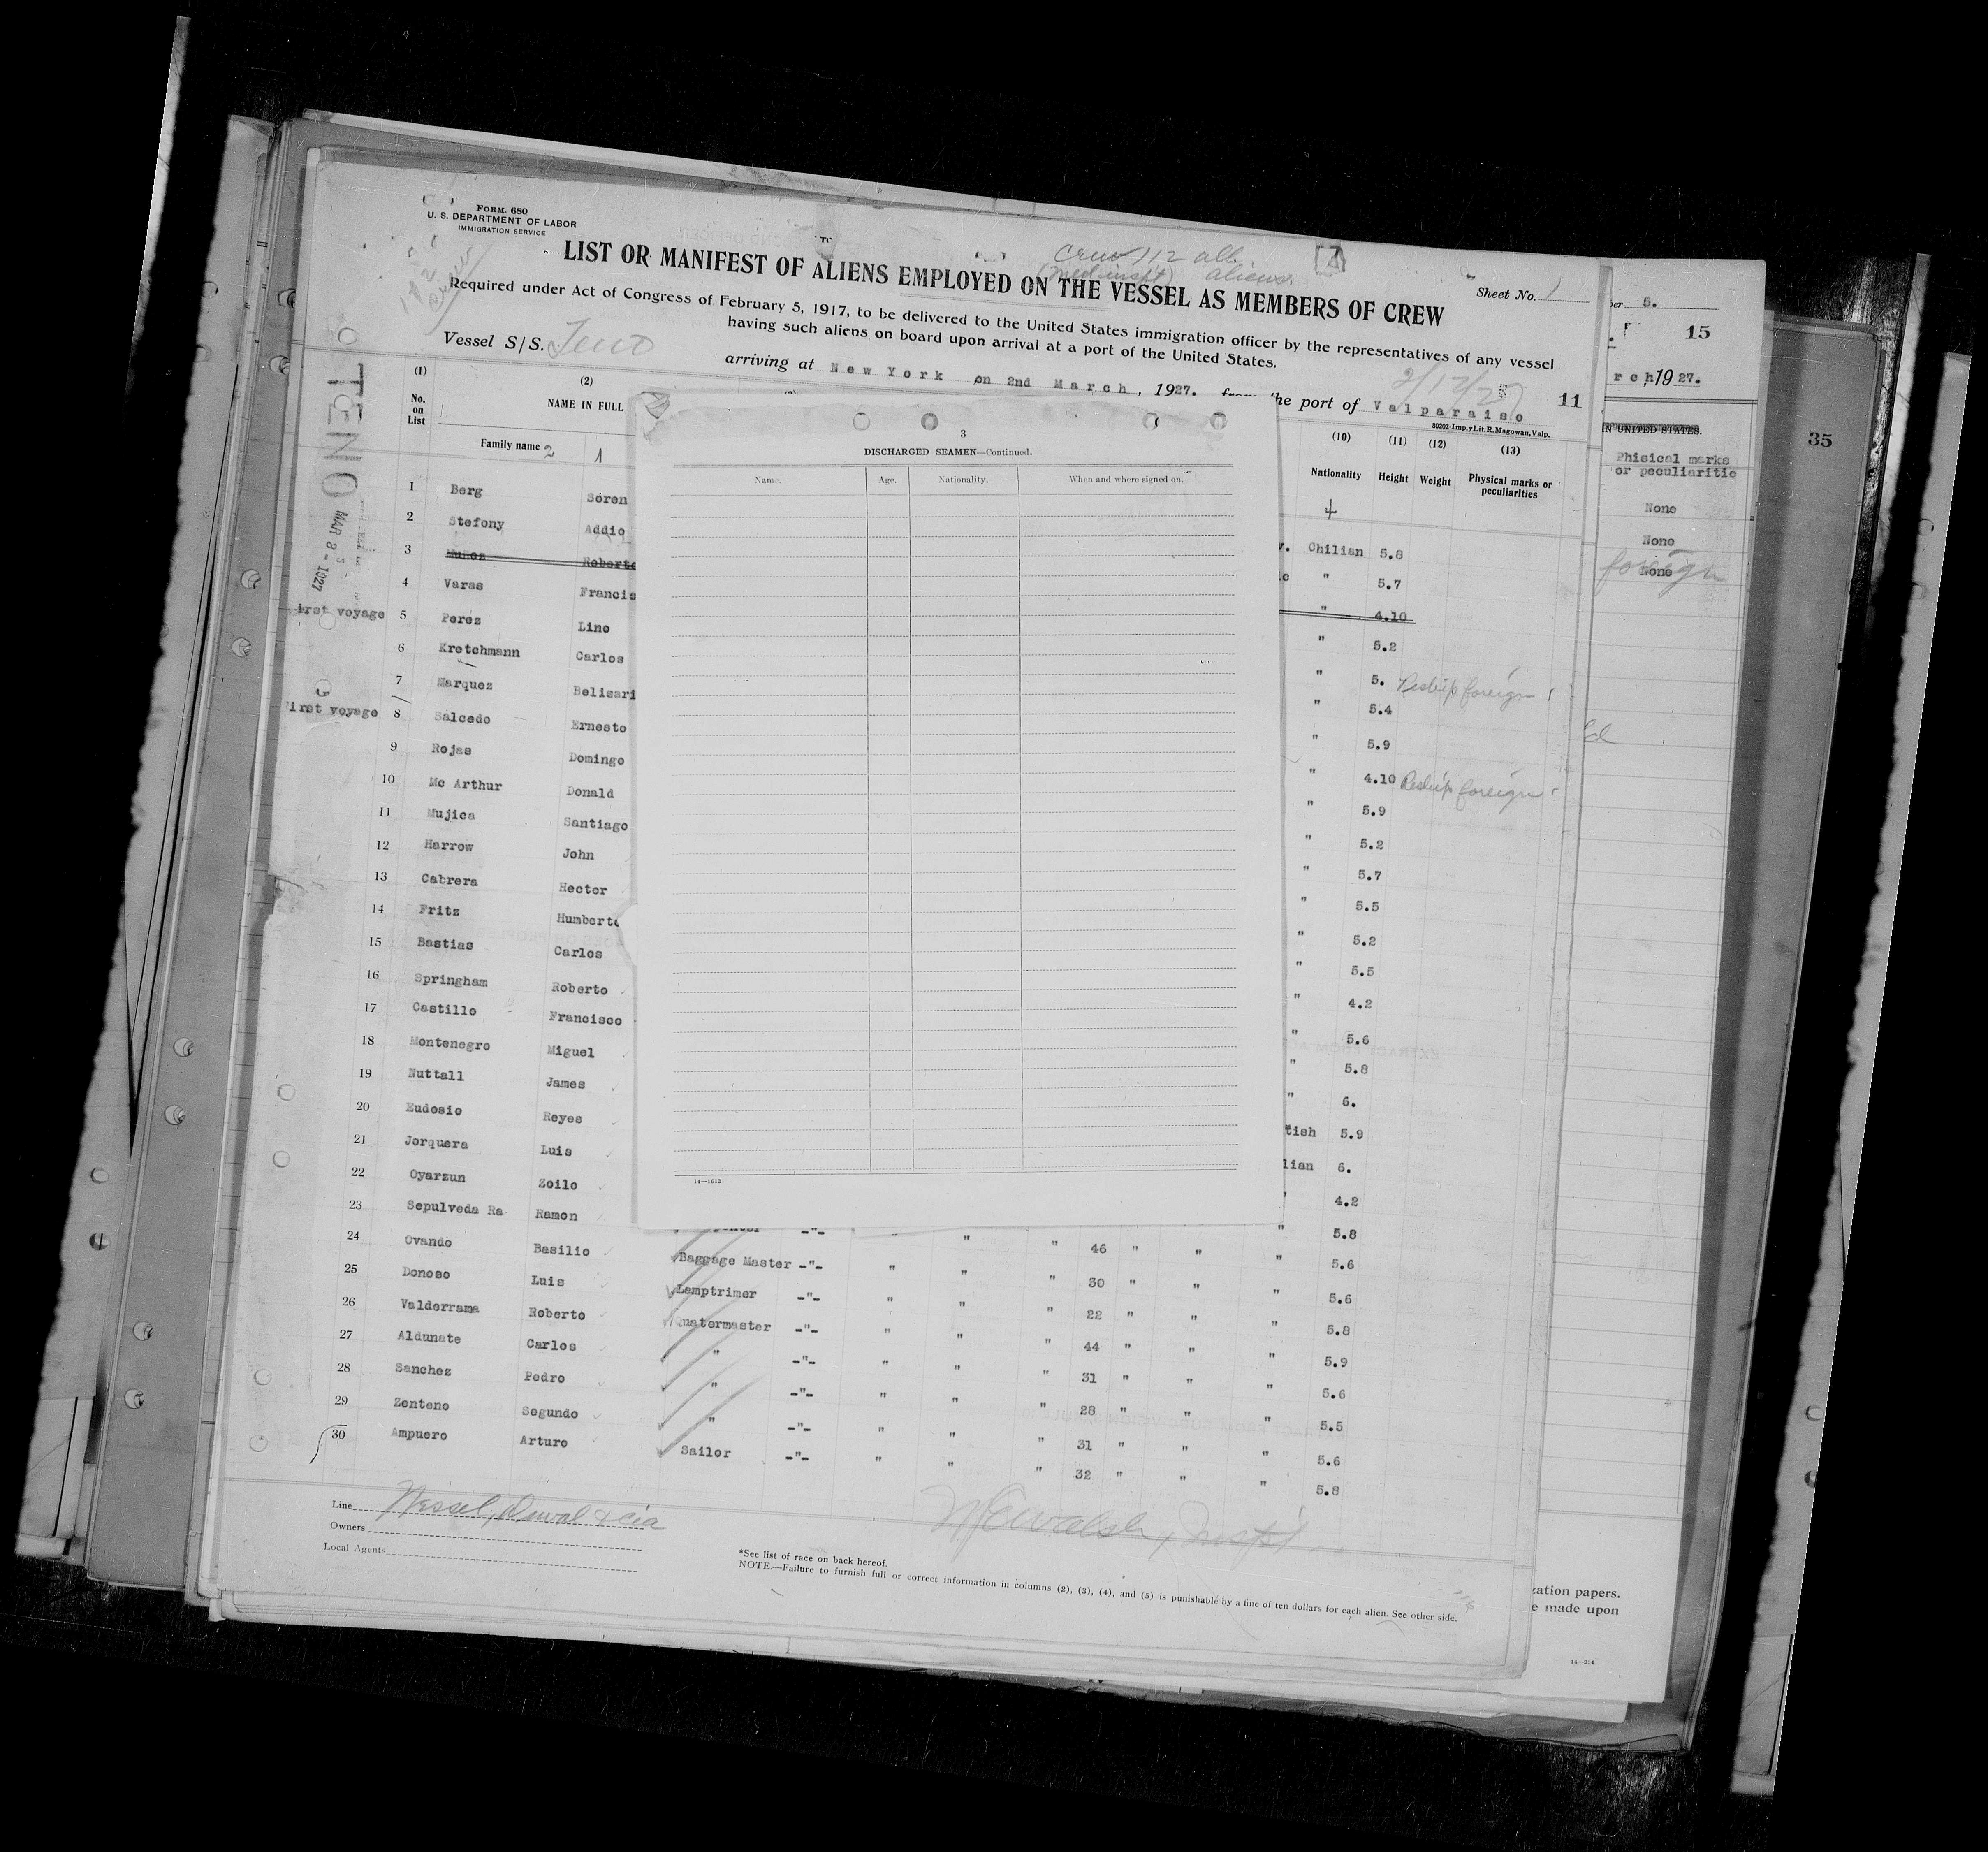 FORM 680
U. S. DEPARTMENT OF LABOR
IMMIGRATION SERVICE
Crew 112 all
aliens.
LIST OR MANIFEST OF ALIENS EMPLOYED ON THE VESSEL AS MEMBERS OF CREW
Sheet No. 1
Required under Act of Congress of February 5, 1917, to be delivered to the United States immigration officer by the representatives of any vessel
having such aliens on board upon arrival at a port of the United States.
Vessel S/S. Teno
arriving at New York on 2nd March, 1927. from the port of Valparaiso
2/12/27
11
80202-Imp.yLit.R.Magowan,Valp.
TENO
MAR 3 - 1927
(1) (2) (10) (11) (12) (13)
No. on List
NAME IN FULL
Family name 2 1
Nationality Height Weight Physical marks or peculiarities
4
1 Berg Soren
2 Stefony Addio
3 Munoz Roberto
4 Varas Francis
irst voyage 5 Perez Lino
6 Kretchmann Carlos
7 Marquez Belisari
irst voyage 8 Salcedo Ernesto
9 Rojas Domingo
10 Mc Arthur Donald
11 Mujica Santiago
12 Harrow John
13 Cabrera Hector
14 Fritz Humberto
15 Bastias Carlos
16 Springham Roberto
17 Castillo Francisco
18 Montenegro Miguel
19 Nuttall James
20 Eudosio Reyes
21 Jorquera Luis
22 Oyarzun Zoilo
23 Sepulveda Ra Ramon
24 Ovando Basilio
25 Donoso Luis
26 Valderrama Roberto
27 Aldunate Carlos
28 Sanchez Pedro
29 Zenteno Segundo
30 Ampuero Arturo
3
DISCHARGED SEAMEN—Continued.
Name. Age. Nationality. When and where signed on.
14—1613
Chilian 5.8
" 5.7
" 4.10
" 5.2
" 5. Reship foreign
" 5.4
" 5.9
" 4.10 Reship foreign
" 5.9
" 5.2
" 5.7
" 5.5
" 5.2
" 5.5
" 4.2
" 5.6
" 5.8
" 6.
tish 5.9
lian 6.
" 4.2
" 5.8
Baggage Master -"- " " " 46 " " " 5.6
Lamptrimer -"- " " " 30 " " " 5.6
Quatermaster -"- " " " 22 " " " 5.8
" -"- " " " 44 " " " 5.9
" -"- " " " 31 " " " 5.6
" -"- " " " 28 " " " 5.5
Sailor -"- " " " 31 " " " 5.6
" " 32 " " " 5.8
Line Wessel, Duval & cia
Owners
Local Agents
*See list of race on back hereof.
NOTE.—Failure to furnish full or correct information in columns (2), (3), (4), and (5) is punishable by a fine of ten dollars for each alien. See other side.
5.
15
rch, 1927.
IN UNITED STATES.
Phisical marks
or peculiaritie
None
None
None
foreign
zation papers.
e made upon
14—314
35